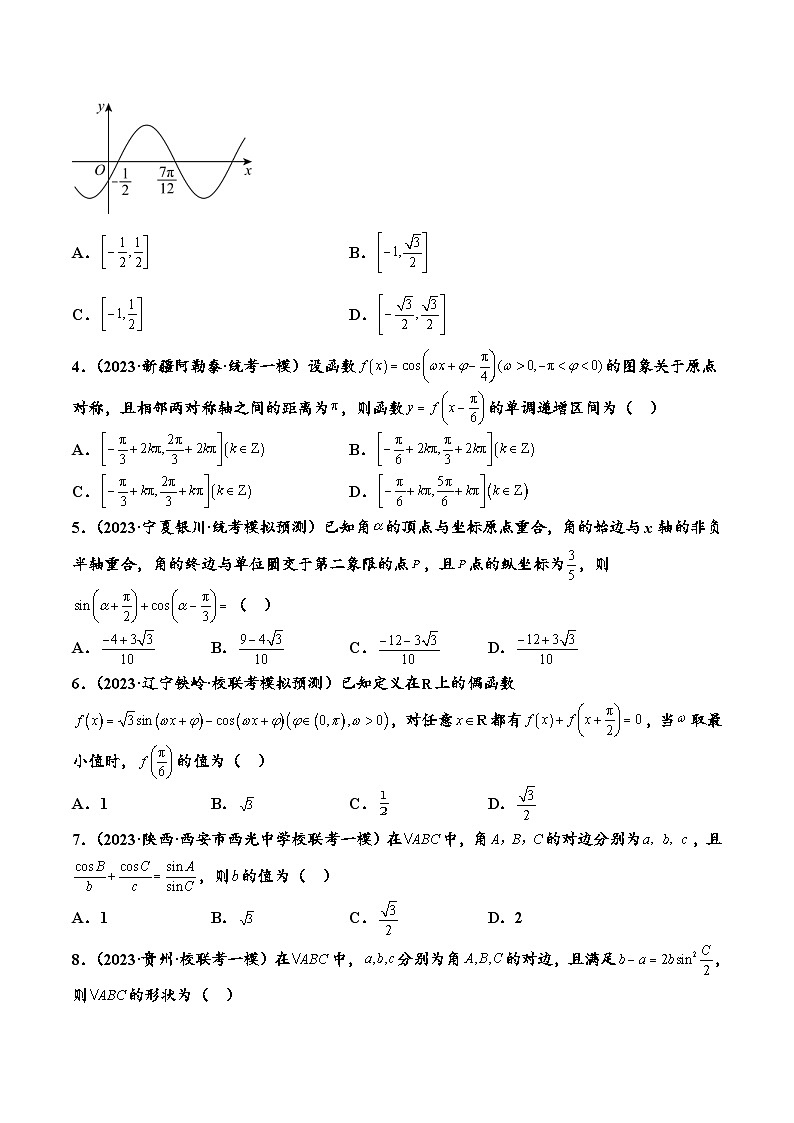 y
O
x
-1/2
7π/12
A．[-1/2,1/2]　B．[-1,√3/2]
C．[-1,1/2]　D．[-√3/2,√3/2]
4．（2023·新疆阿勒泰·统考一模）设函数f(x)=cos(ωx+φ-π/4)(ω>0,-π<φ<0)的图象关于原点
对称，且相邻两对称轴之间的距离为π，则函数y=f(x-π/6)的单调递增区间为（　）
A．[-π/3+2kπ,2π/3+2kπ](k∈Z)　B．[-π/6+2kπ,π/3+2kπ](k∈Z)
C．[-π/3+kπ,2π/3+kπ](k∈Z)　D．[-π/6+kπ,5π/6+kπ](k∈Z)
5．（2023·宁夏银川·统考模拟预测）已知角α的顶点与坐标原点重合，角的始边与x轴的非负
半轴重合，角的终边与单位圆交于第二象限的点P，且P点的纵坐标为3/5，则
sin(α+π/2)+cos(α-π/3)=（　）
A．(-4+3√3)/10　B．(9-4√3)/10　C．(-12-3√3)/10　D．(-12+3√3)/10
6．（2023·辽宁铁岭·校联考模拟预测）已知定义在R上的偶函数
f(x)=√3sin(ωx+φ)-cos(ωx+φ)(φ∈(0,π),ω>0)，对任意x∈R都有f(x)+f(x+π/2)=0，当ω取最
小值时，f(π/6)的值为（　）
A．1　B．√3　C．1/2　D．√3/2
7．（2023·陕西·西安市西光中学校联考一模）在VABC中，角A，B，C的对边分别为a，b，c，且
cosB/b+cosC/c=sinA/sinC，则b的值为（　）
A．1　B．√3　C．√3/2　D．2
8．（2023·贵州·校联考一模）在VABC中，a,b,c分别为角A,B,C的对边，且满足b-a=2bsin²C/2，
则VABC的形状为（　）